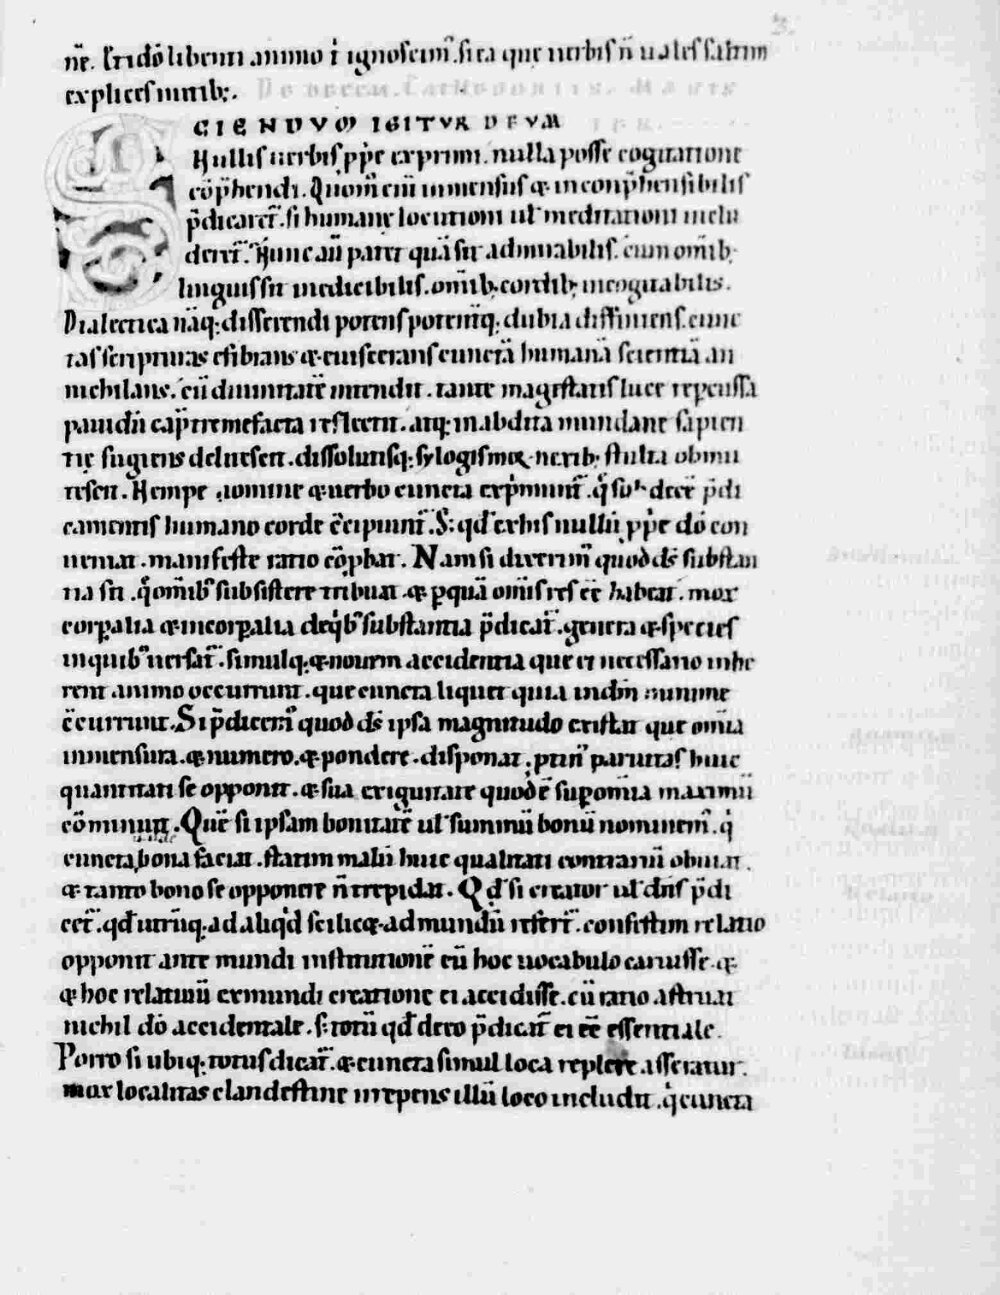 nr̄. Cridō libenti animo ⁊ ignoscim̄. si ea que uerbis n̄ uales saltim
explices nutib;.
SCIENDVM IGITVR DEVM
Nullis uerbis ꝓp̄e exprimi. nulla posse cogitatione
cōp̄hendi. Quom̄ eni inmensus & inconp̄hensibilis
p̄dicaret̄. si humane locutioni ul̄ meditationi inclu
deret̄. Nunc aū patet quā sit admirabilis. cum om̄ib;
linguis sit indicibilis. om̄ib; cordib; incogitabilis.
Dialectica nāq; disserendi potens potent̄q; dubia diffiniens. cunc
tas scripturas esibians & eui scerans cunctā humanā scientiā an
nichilans. cū diuinitatē intendit. tante magestatis luce repcussa
pauidū cap̄ tremefacta reflectit. atq; in abdita mundane sapien
tie fugiens delitescit. dissolutisq; sylogismoꝝ nexib; stulta obmu
tescit. Nempe nomine & uerbo cuncta exp̄munt̄. q̄ sub decē p̄di
camentis humano corde c̄cipiunt̄. S; qd̄ ex his nullū ꝓp̄e dō con
ueniat. manifeste ratio cōp̄bat. Nam si dixerim̄ quod d̄s substan
tia sit. q̄ om̄ib; subsistere tribuat. & p quā om̄is res ēē habeat. mox
corꝑalia & incorꝑalia de q̄b; substantia p̄dicat̄. genera & species
in quib; uersat̄. simulq; & nouem accidentia que ei necessario inhe
rent animo occurrunt. que cuncta liquet quia in dm̄ minime
c̄currunt. Si p̄dicem̄ quod d̄s ipsa magnitudo existit que om̄ia
in mensura. & numero. & pondere. disponat. ptin̄ paruitas huic
quantitati se opponit. & sua exiguitate quod ē suꝑ om̄ia maximū
cōminuit. Que si ipsam bonitatē ul̄ summū bonū nominem̄. q̄
cuncta bona faciat. statim malū huic qualitati contrariū obuiat.
& tanto bono se opponere n̄ trepidat. Qd̄ si creator ul̄ dn̄s p̄di
cet̄. qd̄ utrūq; ad aliq̄d scilic& ad mundū refert̄. confestim relatio
opponit ante mundi institutionē eū hoc uocabulo caruisse. &
& hoc relatiuū ex mundi creatione ei accidisse. cū ratio astruat
nichil dō accidentale. s; totū qd̄ de eo p̄dicat̄ ei ēē essentiale.
Porro si ubiq; totus dicat̄. & cuncta simul loca replere asseratur.
mox localitas clandestine irrepens illū loco includit. q̄ cuncta